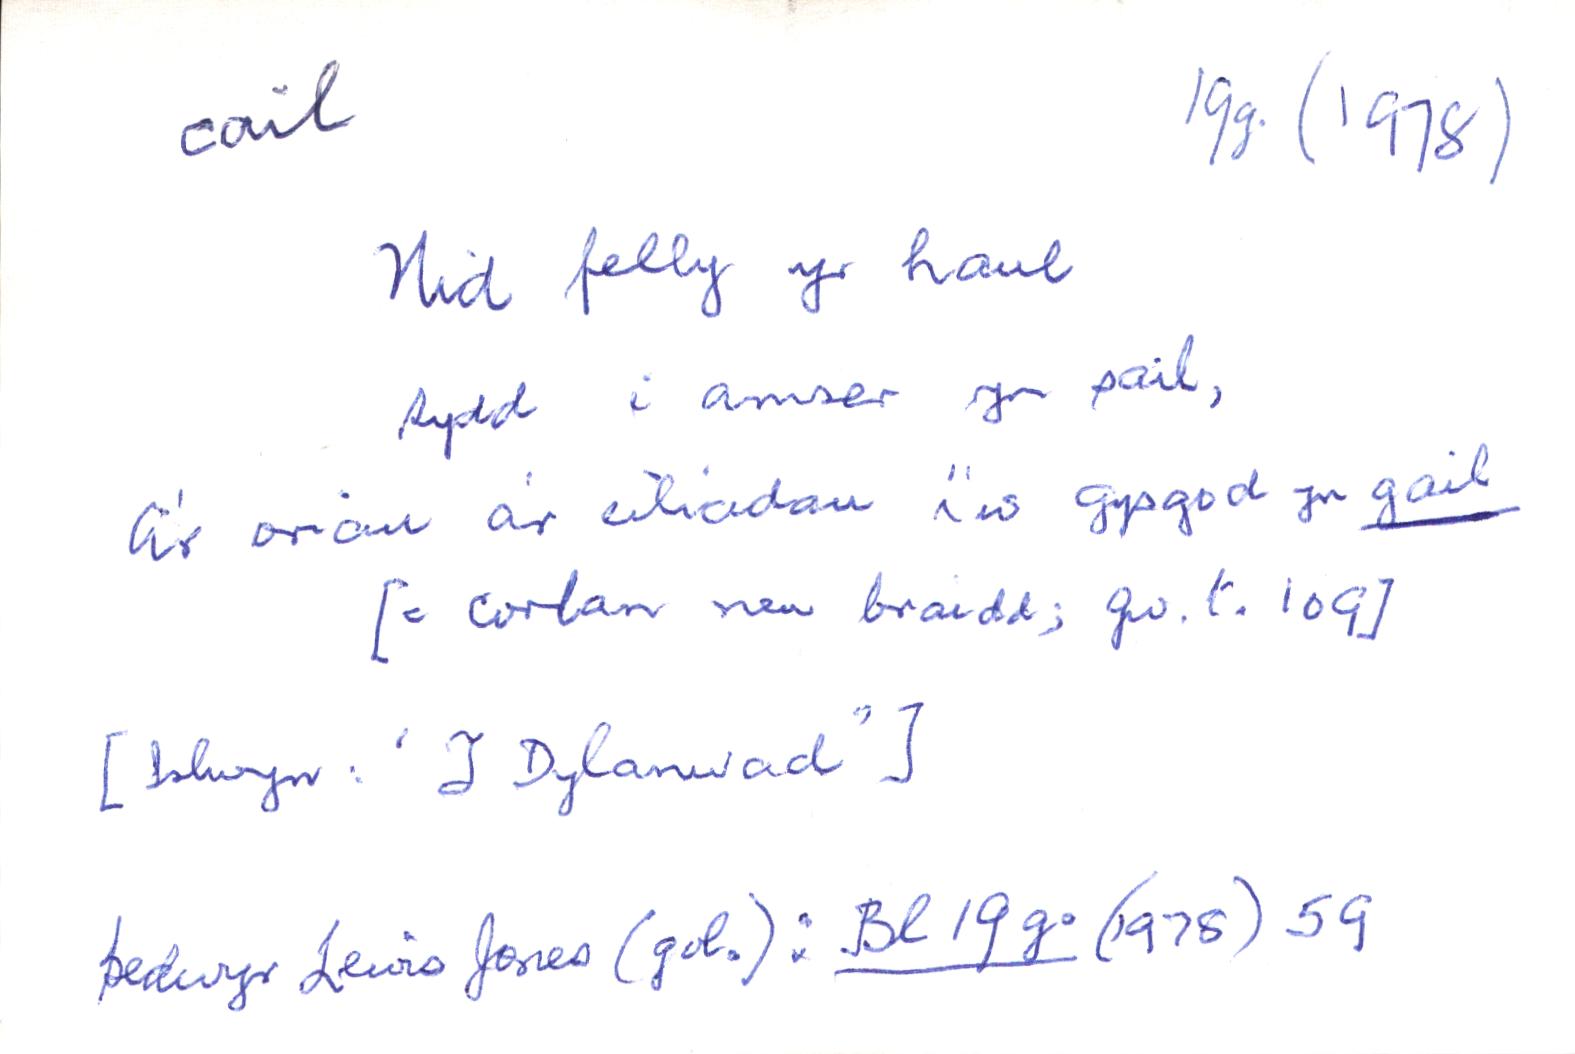 cail 19g. (1978)
Nid felly yr haul
sydd i amser yn sail,
A'r oriau a'r eiliadau i'w gysgod yn gail
[= corlan neu braidd; gw. t. 109]
[Islwyn: 'Y Dylanwad"]
Bedwyr Lewis Jones (gol.): Bl 19g. (1978) 59